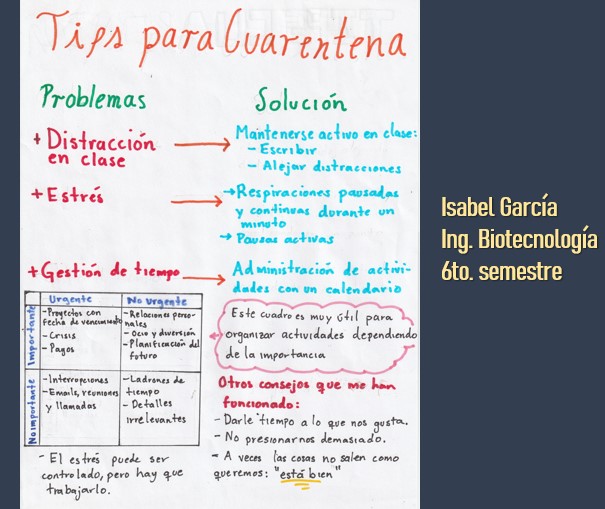 Tips para Cuarentena
Problemas
Solución
+ Distracción
en clase
Mantenerse activo en clase:
- Escribir
- Alejar distracciones
+ Estrés
→ Respiraciones pausadas
y continuas durante un
minuto
→ Pausas activas
+ Gestión de tiempo
Administración de activi-
dades con un calendario
Urgente
No urgente
Importante
- Proyectos con
fecha de vencimiento
- Crisis
- Pagos
- Relaciones perso-
nales
- Ocio y diversión
- Planificación del
futuro
No importante
- Interrupciones
- Emails, reuniones
y llamadas
- Ladrones de
tiempo
- Detalles
irrelevantes
Este cuadro es muy útil para
organizar actividades dependiendo
de la importancia
- El estrés puede ser
controlado, pero hay que
trabajarlo.
Otros consejos que me han
funcionado:
- Darle tiempo a lo que nos gusta.
- No presionarnos demasiado.
- A veces las cosas no salen como
queremos: "está bien"
Isabel García
Ing. Biotecnología
6to. semestre